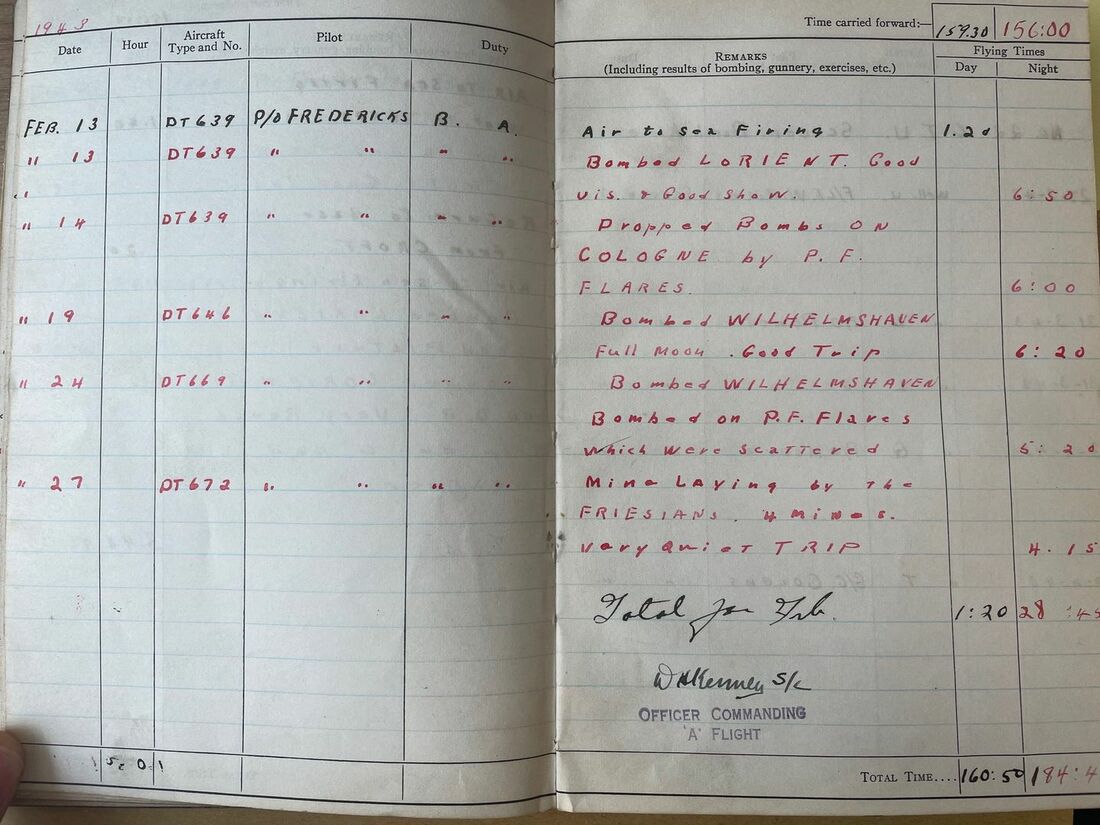 1943
Date Hour Aircraft Type and No. Pilot Duty
FEB. 13 DT639 P/O FREDERICKS B. A.
" 13 DT639 " " " "
"
" 14 DT639 " " " "
" 19 DT646 " " " "
" 24 DT669 " " " "
" 27 DT672 " " " "
Time carried forward:— 159.30 156:00
REMARKS
(Including results of bombing, gunnery, exercises, etc.)
Flying Times
Day Night
Air to Sea Firing 1.20
Bombed LORIENT. Good
vis. & Good Show. 6:50
Dropped Bombs ON
COLOGNE by P.F.
FLARES. 6:00
Bombed WILHELMSHAVEN
Full Moon. Good Trip 6:20
Bombed WILHELMSHAVEN
Bombed on P.F. Flares
which were scattered 5:20
Mine Laying by the
FRIESIANS. 4 Mines.
very Quiet TRIP 4.15
Total for Feb. 1:20 28:45
S/L
OFFICER COMMANDING
'A' FLIGHT
TOTAL TIME.... 160:50 184:4